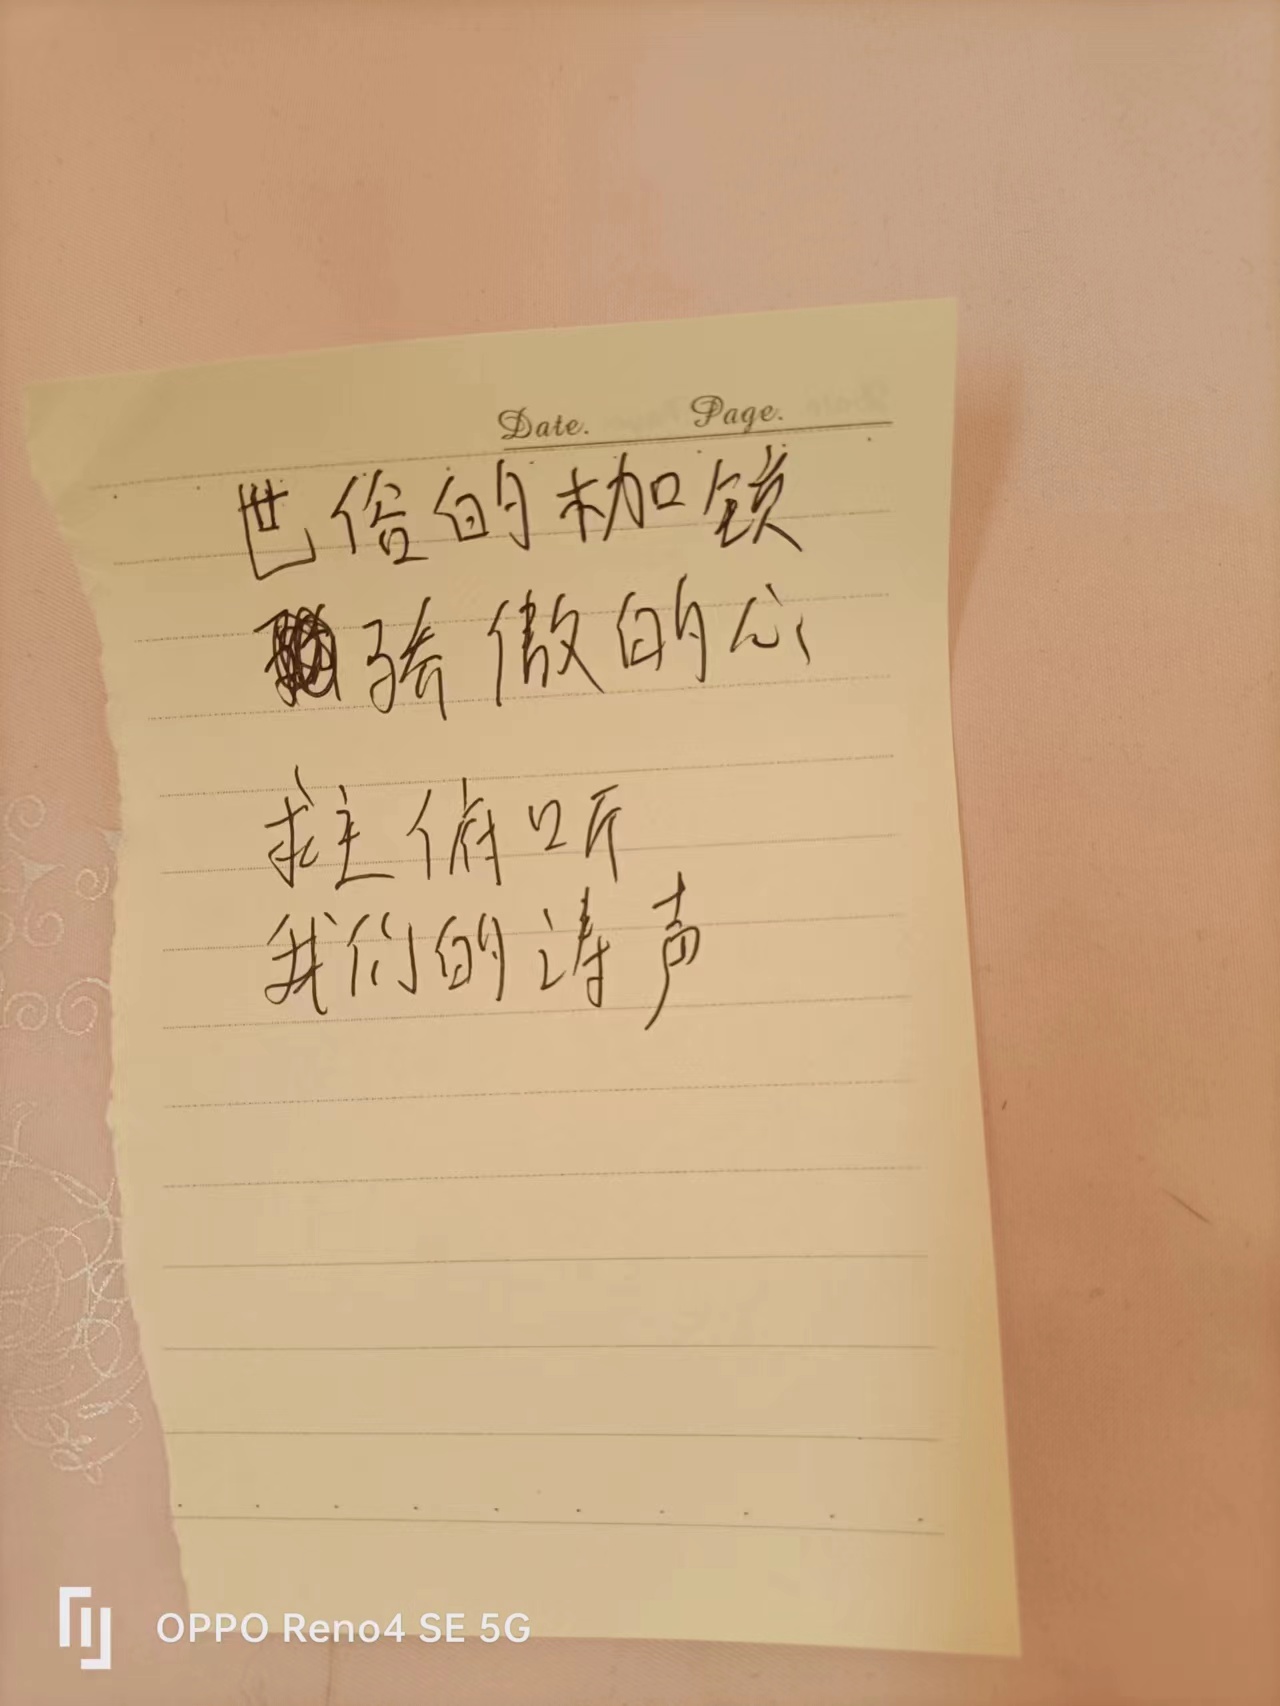 Date. Page.
世俗的枷锁
骄傲的心
求主俯听
我们的涛声
OPPO Reno4 SE 5G